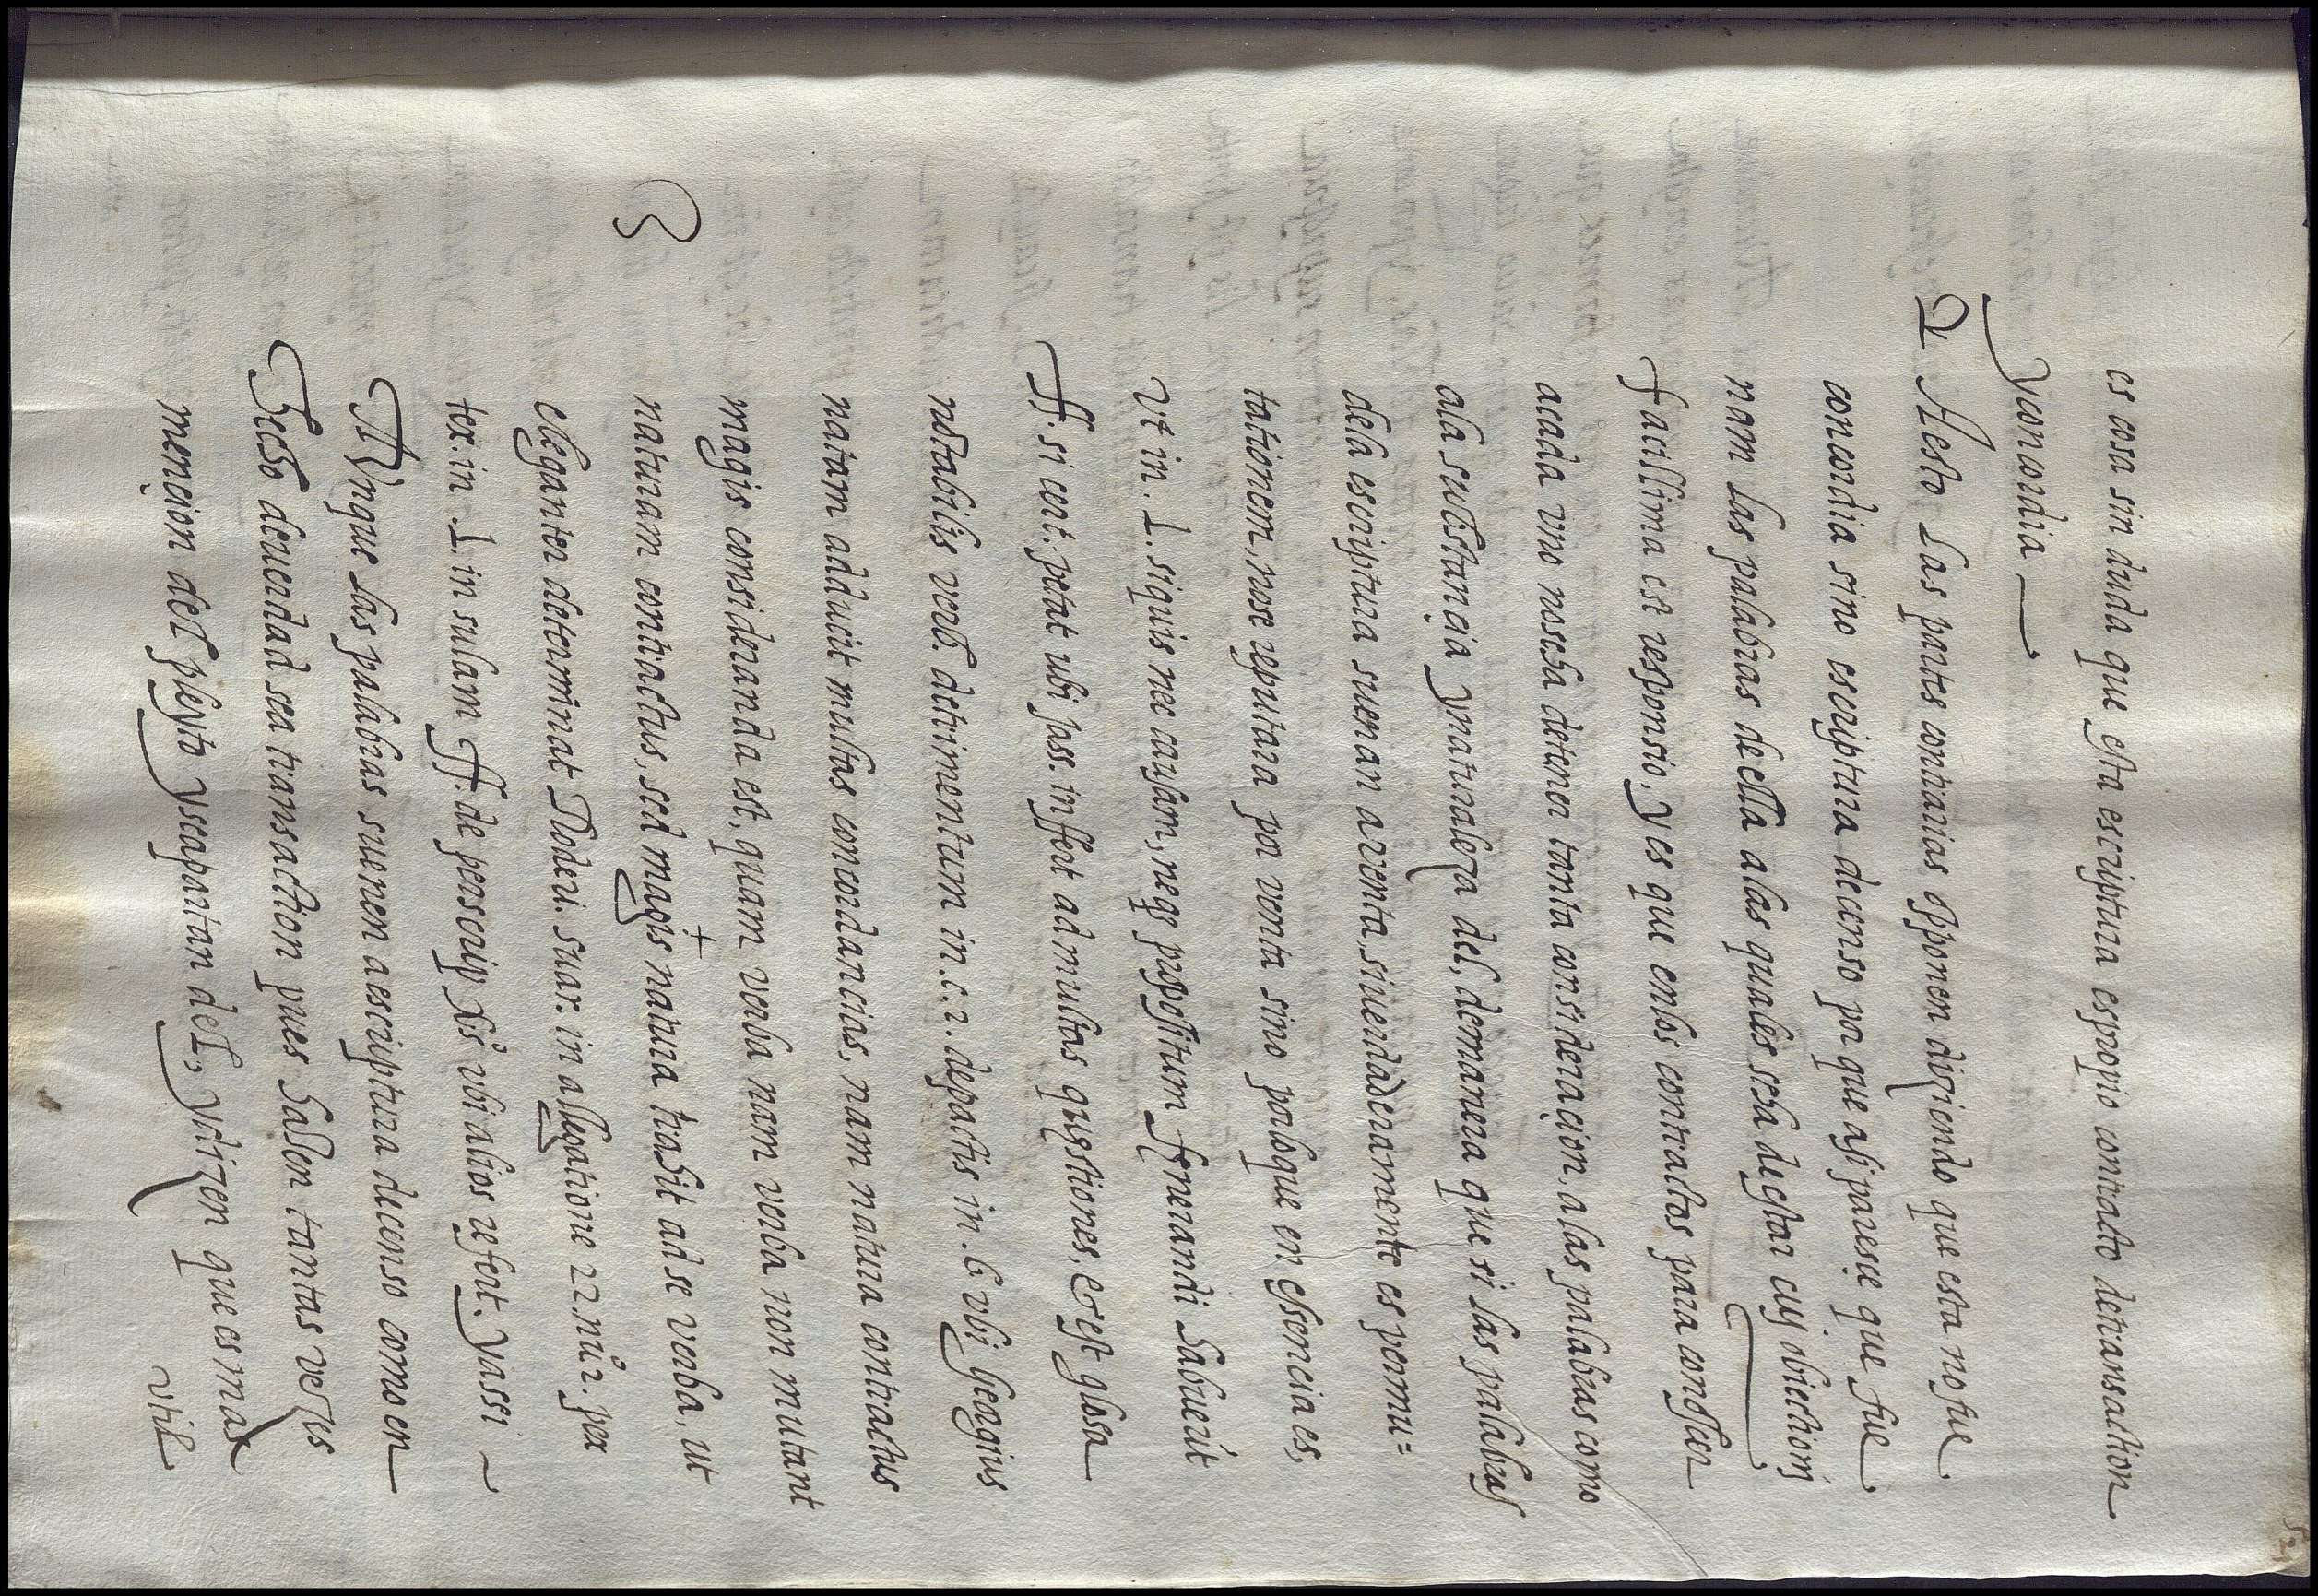 es cosa sin duda que esta escriptura es propio contrato de transaction
y concordia
2 A esto las partes contrarias opponen diziendo que esta no fue
concordia sino escriptura de censo por que assi paresçe que fue
nam las palabras de ella a las quales se ha de estar cuj obiectionj
facillima est responsio. y es que en los contractos para conosçer
a cada vno no se ha de tener tanta consideraçion. a las palabras como
a la substançia y naturaleza del, de manera que si las palabras
de la escriptura suenan a venta, si verdaderamente es permu=
tationem, no se reputara por venta sino por lo que en essencia es,
vt in. L. si quis nec causam, neqe propositum fenerandi habuerit
ff. si cert. petat ubi Jass. infert ad multas quęstiones, & est glosa
notabilis verb. detrimentum in. c. 2. de pactis in. 6. vbi Geogius
natam adducit multas concordancias, nam natura contractus
magis consideranda est, quam verba nam verba non mutant
3 naturam contractus, sed magis natura trahit ad se verba, ut
eleganter determinat Roderi. suar. in allegatione 22. nuo. 2. per
tex. in. L. insulam ff. de prescrip. vbis vbi alios refert. y assi
Avnque las palabras suenen a escriptura de censo como en
hecho de verdad sea transaction pues hablan tantas vezes
mençion del pleyto y se apartan del, y dizen que es mas
vtil
52